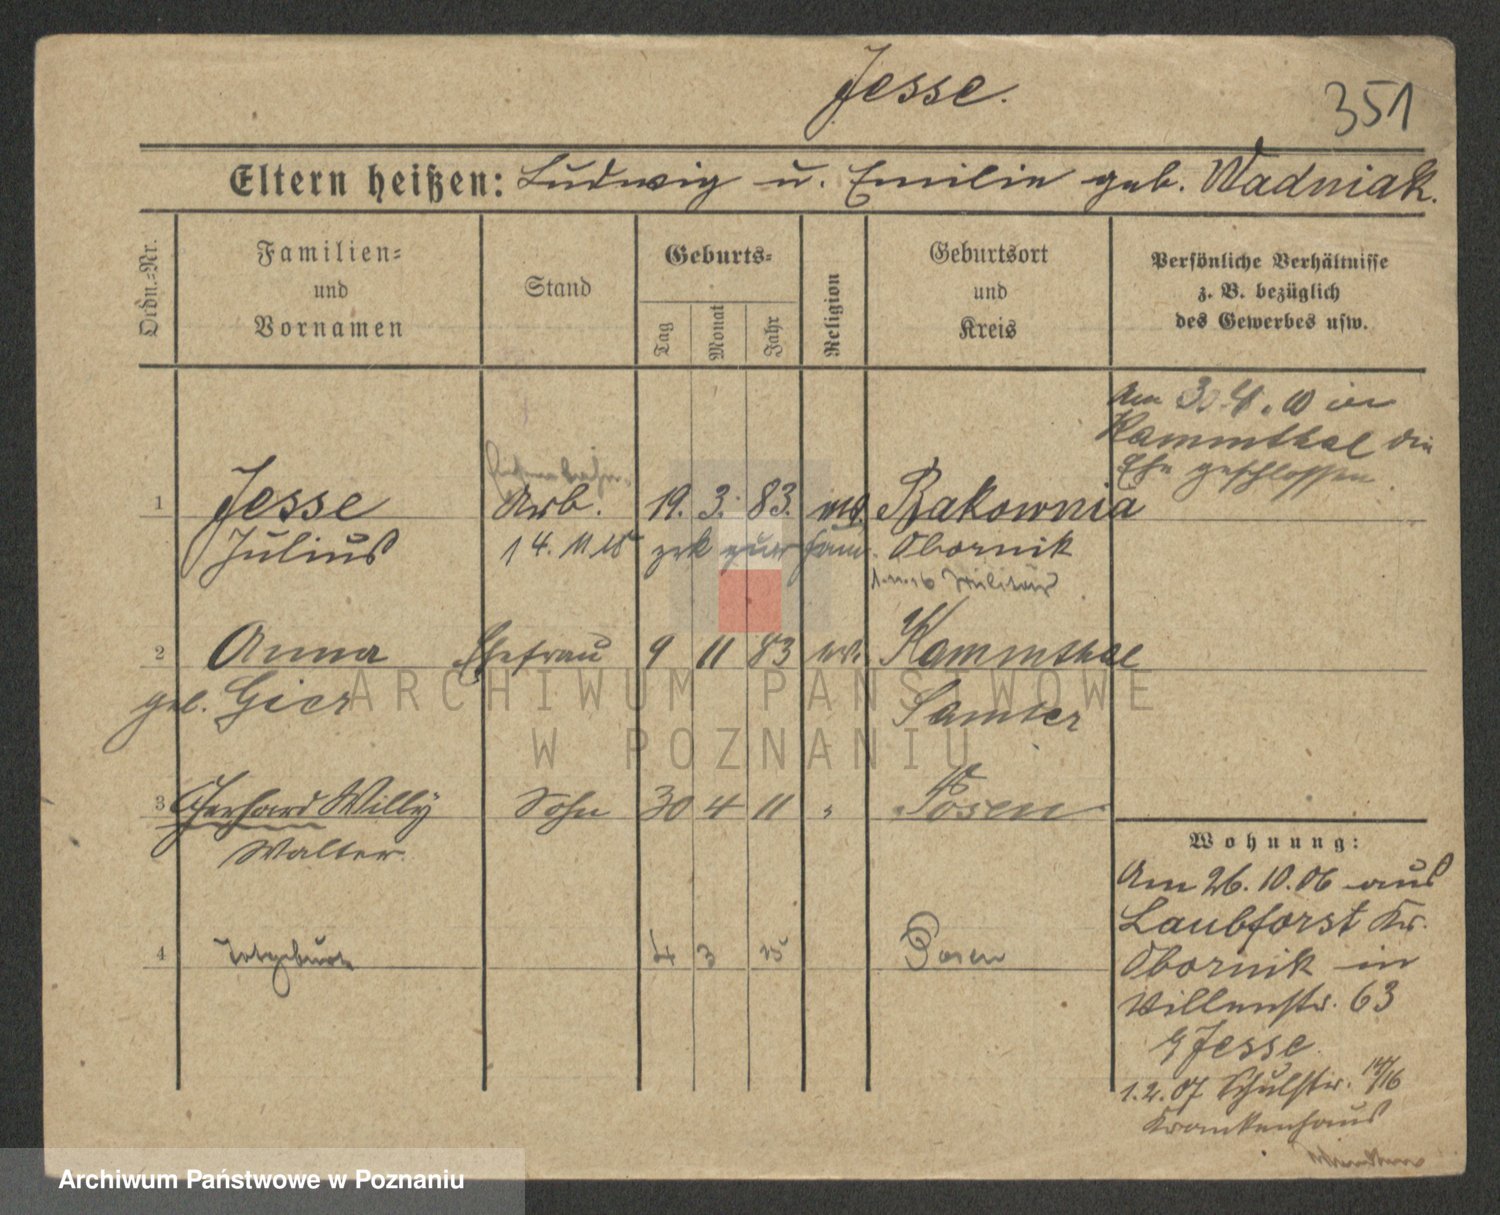 Jesse.
351
Eltern heißen: Ludwig u. Emilie geb. Wadniak.
Ordn.-Nr.
Familien-
und
Vornamen
Stand
Geburts-
Tag
Monat
Jahr
Religion
Geburtsort
und
Kreis
Persönliche Verhältnisse
z. B. bezüglich
des Gewerbes usw.
Am 30.4.10 in
Kammthal die
Ehe geschlossen.
1 Jesse Arb. 19. 3. 83. Rakownia
Julius 14.11.18 zrk zur Fam. Obornik
1.11.16 Militär
2 Anna Ehefrau 9 11 83 Kammthal
geb. Gier Samter
3 Gerhard Willy Sohn 30 4 11 " Posen
Walter.
4 Totgeburt 4 3 15 Posen
Wohnung:
Am 26.10.06 aus
Laubforst Kr.
Obornik in
Villenstr. 63
Jesse
1.2.07 Schulstr. 14/16
Krankenhaus
ARCHIWUM PAŃSTWOWE
W POZNANIU
Archiwum Państwowe w Poznaniu